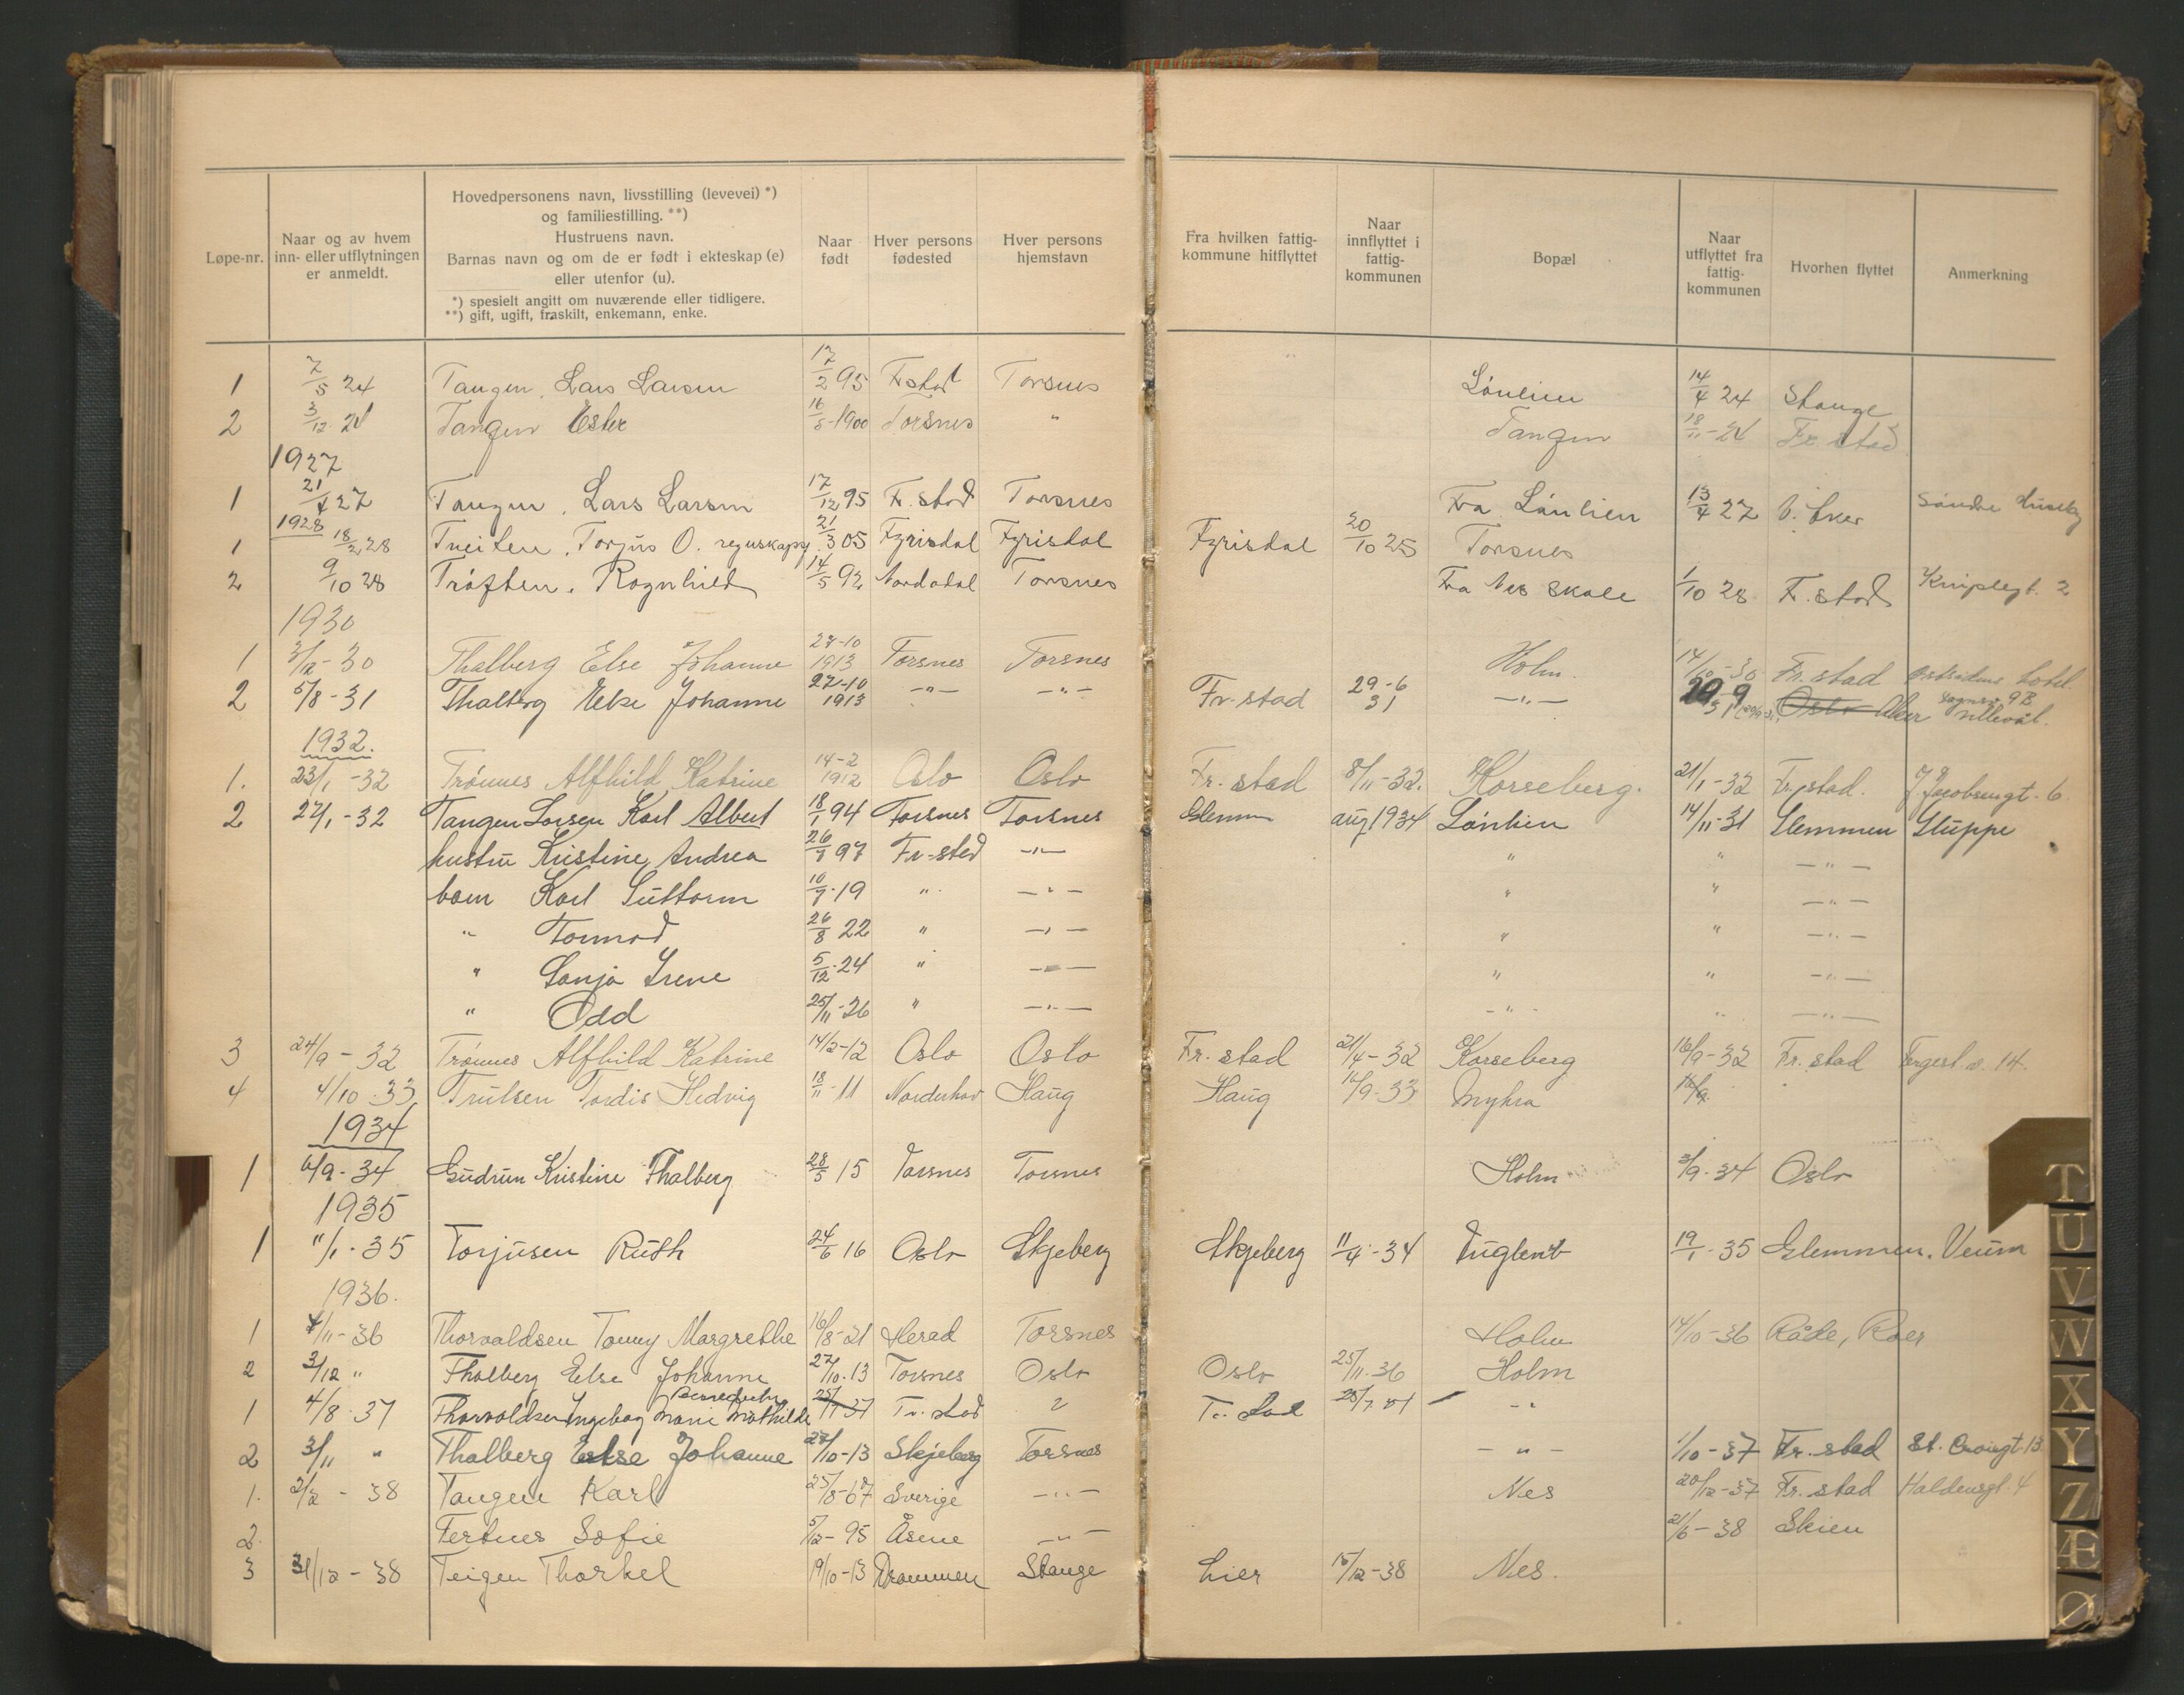 Løpe-nr. | Naar og av hvem inn- eller utflytningen er anmeldt. | Hovedpersonens navn, livsstilling (levevei) *) og familiestilling. **) Hustruens navn. Barnas navn og om de er født i ekteskap (e) eller utenfor (u). *) spesielt angitt om nuværende eller tidligere. **) gift, ugift, fraskilt, enkemann, enke. | Naar født | Hver persons fødested | Hver persons hjemstavn | Fra hvilken fattig-kommune hitflyttet | Naar innflyttet i fattig-kommunen | Bopæl | Naar utflyttet fra fattig-kommunen | Hvorhen flyttet | Anmerkning
1 7/5 24 Tangen, Lars Larsen 17/2 95 F.stad Torsnes Lónlien 14/4 24 Stange
2 3/12 Tangen Ester 16/5-1900 Torsnes " Tangen 18/11 Fr.stad
1927
1 21/4 27 Tangen, Lars Larsen 17/12 95 F.stad Torsnes Fra Lónlien 13/4 27 V. Aker Søndre Huseby
1928
1 18/2 28 Tveiten, Torjus O. 21/3 05 Fyrisdal Fyrisdal Fyrisdal 20/10 25 Torsnes
2 9/10 28 Trøften, Ragnhild 14/5 92 Torsnes Fra Nes Skole 1/10 28 F.stad
1930
1 3/12-30 Thalberg Else Johanne 27-10 1913 Torsnes Torsnes Holm. 14/10-30 Fr.stad hotel
2 5/8-31 Thalberg Else Johanne 27-10 1913 -"- -"- Fr-stad 29-6 31 -"- 29-9 31 Oslo Aker Sognsv. 9B Ullevål.
1932.
1. 23/1-32 Trónnes Alfhild Katrine 14-2 1912 Oslo Oslo Fr.stad 8/11-32. Korseberg. 21/1-32 Fr.stad. J. Jacobsengt. 6
2 27/1-32 Tangen Larsen Karl Albert 18/1 94 Torsnes Torsnes Glemmen aug 1934 Lónlien 14/11-31 Glemmen Gluppe
hustru Kristine Andrea 97 Fr-stad -"- " " -"-
barn Karl Guttorm 10/7-19 " -"- " " -"-
" Tormod 26/8 22 " -"- " " -"-
" Sonja Irene 5/12-24 " -"- " " -"-
" Odd 25/11-26 " -"- -"- " -"-
3 24/9-32 Trónnes Alfhild Katrine 14/2-12 Oslo Oslo Fr.stad 21/4-32 Korseberg 16/9-32 Fr.stad 14.
4 4/10-33 Trulsen Tordis Hedvig 18/11-11 Norderhov Haug Haug 16/9-33 Myhra 16/9
1934
1 6/9-34 Gudrun Kristine Thalberg 28/5 15 Torsnes Torsnes Holm 3/9-34 Oslo
1935
1 11/1-35 Torjusen Ruth 24/6 16 Oslo Skjeberg Skjeberg 11/4-34 Fuglevik 19/1-35 Glemmen, Veum
1936.
1 4/11-36 Thorvaldsen Tonny Margrethe 16/8-21 Herad Torsnes Holm 14/10-36 Råde, Roer
2 3/12 " Thalberg Else Johanne 27/10.13 Torsnes Oslo Oslo 25/11.36 Holm
1 4/8-37 Thorvaldsen Ingeborg Marie Mathilde 25/7 37 Fr.stad ? Fr.stad 25/7 -"
2 3/11 " Thalberg Else Johanne 27/10-13 Skjeberg Torsnes -"- 1/10-37 Fr.stad
1. 2/2-38 Tangen Karl 25/8-67 Sverige -"- Nes 20/12-37 Fr.stad Haldensgt. 4
2. Tertnes Sofie 5/12-95 Åsene -"- 21/6-38 Skien
3 31/12-38 Teigen Thorkel 19/10-13 Drammen Stange Lier 15/12-38 Nes.
T
U
V
W
X
Y
Z
Æ
Ø